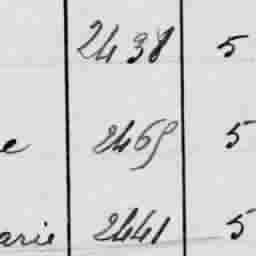 2438 5
e 2469 5
arie 2441 5